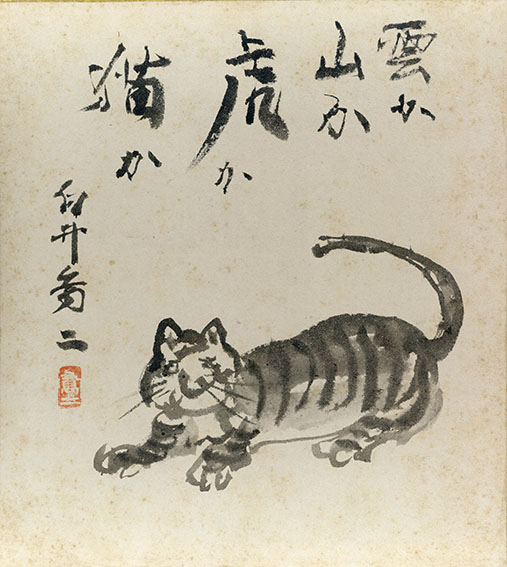 雲か
山か
虎か
猫か
白井喬二